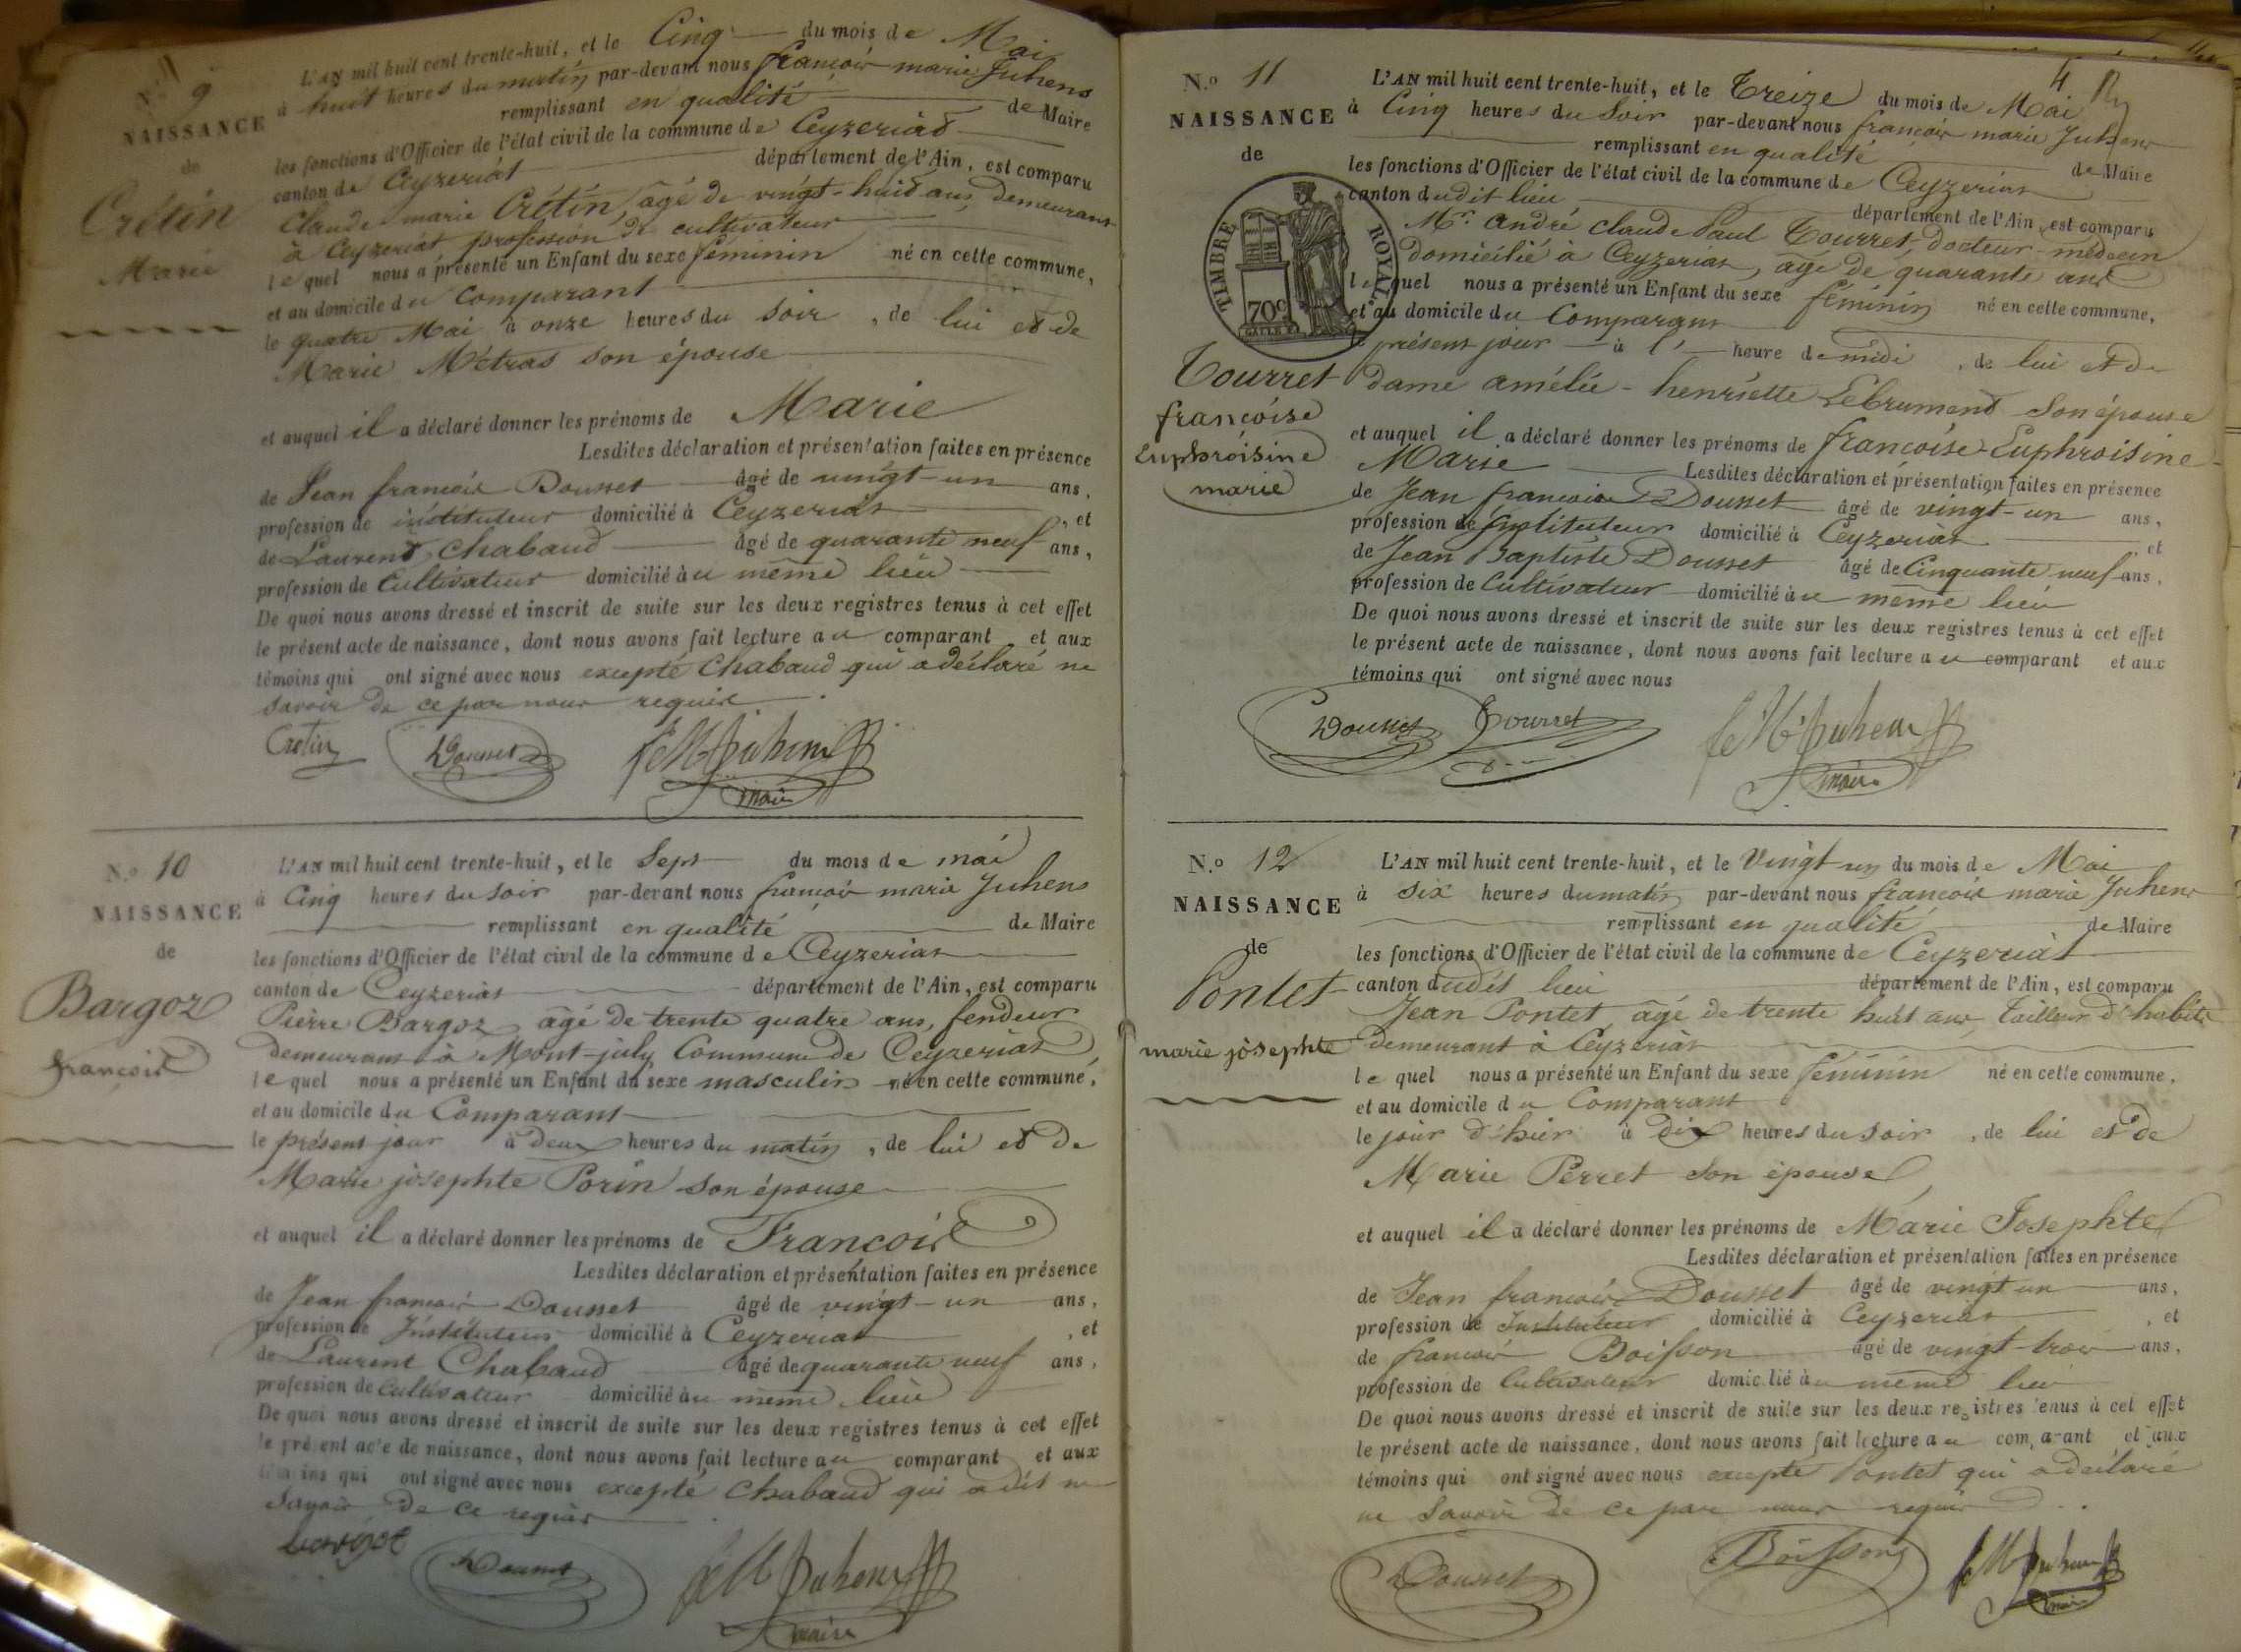 N.o 9
NAISSANCE
de
Crétin
Marie
L'AN mil huit cent trente-huit, et le Cinq du mois de Mai
à huit heures du matin par-devant nous françois marie Juhens
remplissant en qualité de Maire
les fonctions d'Officier de l'état civil de la commune de Ceyzeriat
canton de Ceyzeriat département de l'Ain, est comparu
Claude marie Crétin, âgé de vingt-huit ans, demeurant
à Ceyzeriat profession de cultivateur
lequel nous a présenté un Enfant du sexe féminin né en cette commune,
et au domicile du comparant
le quatre Mai à onze heures du soir, de lui et de
Marie Métras son épouse
et auquel il a déclaré donner les prénoms de Marie
Lesdites déclaration et présentation faites en présence
de Jean françois Dousset âgé de vingt-un ans,
profession de instituteur domicilié à Ceyzeriat, et
de Laurent Chabaud âgé de quarante neuf ans,
profession de Cultivateur domicilié au même lieu
De quoi nous avons dressé et inscrit de suite sur les deux registres tenus à cet effet
le présent acte de naissance, dont nous avons fait lecture au comparant et aux
témoins qui ont signé avec nous excepté Chabaud qui a déclaré ne
savoir de ce par nous requis.
Cretin Dousset f M Juhens
maire
N.o 10
NAISSANCE
de
Bargoz
françois
L'AN mil huit cent trente-huit, et le Sept du mois de mai
à Cinq heures du soir par-devant nous françois marie Juhens
remplissant en qualité de Maire
les fonctions d'Officier de l'état civil de la commune de Ceyzeriat
canton de Ceyzeriat département de l'Ain, est comparu
Pierre Bargoz âgé de trente quatre ans, fendeur
demeurant à Mont-july Commune de Ceyzeriat
lequel nous a présenté un Enfant du sexe masculin né en cette commune,
et au domicile du Comparant
le présent jour à deux heures du matin, de lui et de
Marie josephte Porin son épouse
et auquel il a déclaré donner les prénoms de François
Lesdites déclaration et présentation faites en présence
de Jean françois Dousset âgé de vingt-un ans,
profession de Instituteur domicilié à Ceyzeriat, et
de Laurent Chabaud âgé de quarante neuf ans,
profession de Cultivateur domicilié au même lieu
De quoi nous avons dressé et inscrit de suite sur les deux registres tenus à cet effet
le présent acte de naissance, dont nous avons fait lecture au comparant et aux
témoins qui ont signé avec nous excepté Chabaud qui a dit ne
Savoir de ce requis.
Dousset f M Juhens
maire
4
N.o 11
NAISSANCE
de
TIMBRE ROYAL
70c
Tourret
françoise
Euphroisine
marie
L'AN mil huit cent trente-huit, et le Treize du mois de Mai
à Cinq heures du Soir par-devant nous françois marie Juhens
remplissant en qualité de Maire
les fonctions d'Officier de l'état civil de la commune de Ceyzeriat
canton dudit lieu département de l'Ain, est comparu
Mr. andré claude Paul Tourret, docteur-médecin
domicilié à Ceyzeriat, âgé de quarante ans
lequel nous a présenté un Enfant du sexe féminin né en cette commune,
et au domicile du Comparant
le présent jour à l' heure de midi, de lui et de
dame amélie-henriette Lebrument Son épouse
et auquel il a déclaré donner les prénoms de françoise-Euphroisine-
Marie Lesdites déclaration et présentation faites en présence
de Jean françois Dousset âgé de vingt-un ans,
profession de Instituteur domicilié à Ceyzeriat, et
de Jean Baptiste Dousset âgé de Cinquante neuf ans,
profession de Cultivateur domicilié au même lieu
De quoi nous avons dressé et inscrit de suite sur les deux registres tenus à cet effet
le présent acte de naissance, dont nous avons fait lecture au comparant et aux
témoins qui ont signé avec nous
Dousset Tourret f M Juhens
maire
N.o 12
NAISSANCE
de
Pontet
marie josephte
L'AN mil huit cent trente-huit, et le Vingt-un du mois de Mai
à six heures du matin par-devant nous françois marie Juhens
remplissant en qualité de Maire
les fonctions d'Officier de l'état civil de la commune de Ceyzeriat
canton dudit lieu département de l'Ain, est comparu
Jean Pontet, âgé de trente huit ans, Tailleur d'habits
demeurant à Ceyzeriat
lequel nous a présenté un Enfant du sexe féminin né en cette commune,
et au domicile du Comparant
le jour d'hier à dix heures du soir, de lui et de
Marie Perret son épouse
et auquel il a déclaré donner les prénoms de Marie Josephte
Lesdites déclaration et présentation faites en présence
de Jean françois Dousset âgé de vingt un ans,
profession de Instituteur domicilié à Ceyzeriat, et
de françois Boisson âgé de vingt-trois ans,
profession de Cultivateur domicilié au même lieu
De quoi nous avons dressé et inscrit de suite sur les deux registres tenus à cet effet
le présent acte de naissance, dont nous avons fait lecture au comparant et aux
témoins qui ont signé avec nous excepté Pontet qui a déclaré
ne Savoir de ce par nous requis.
Dousset Boisson f M Juhens
maire